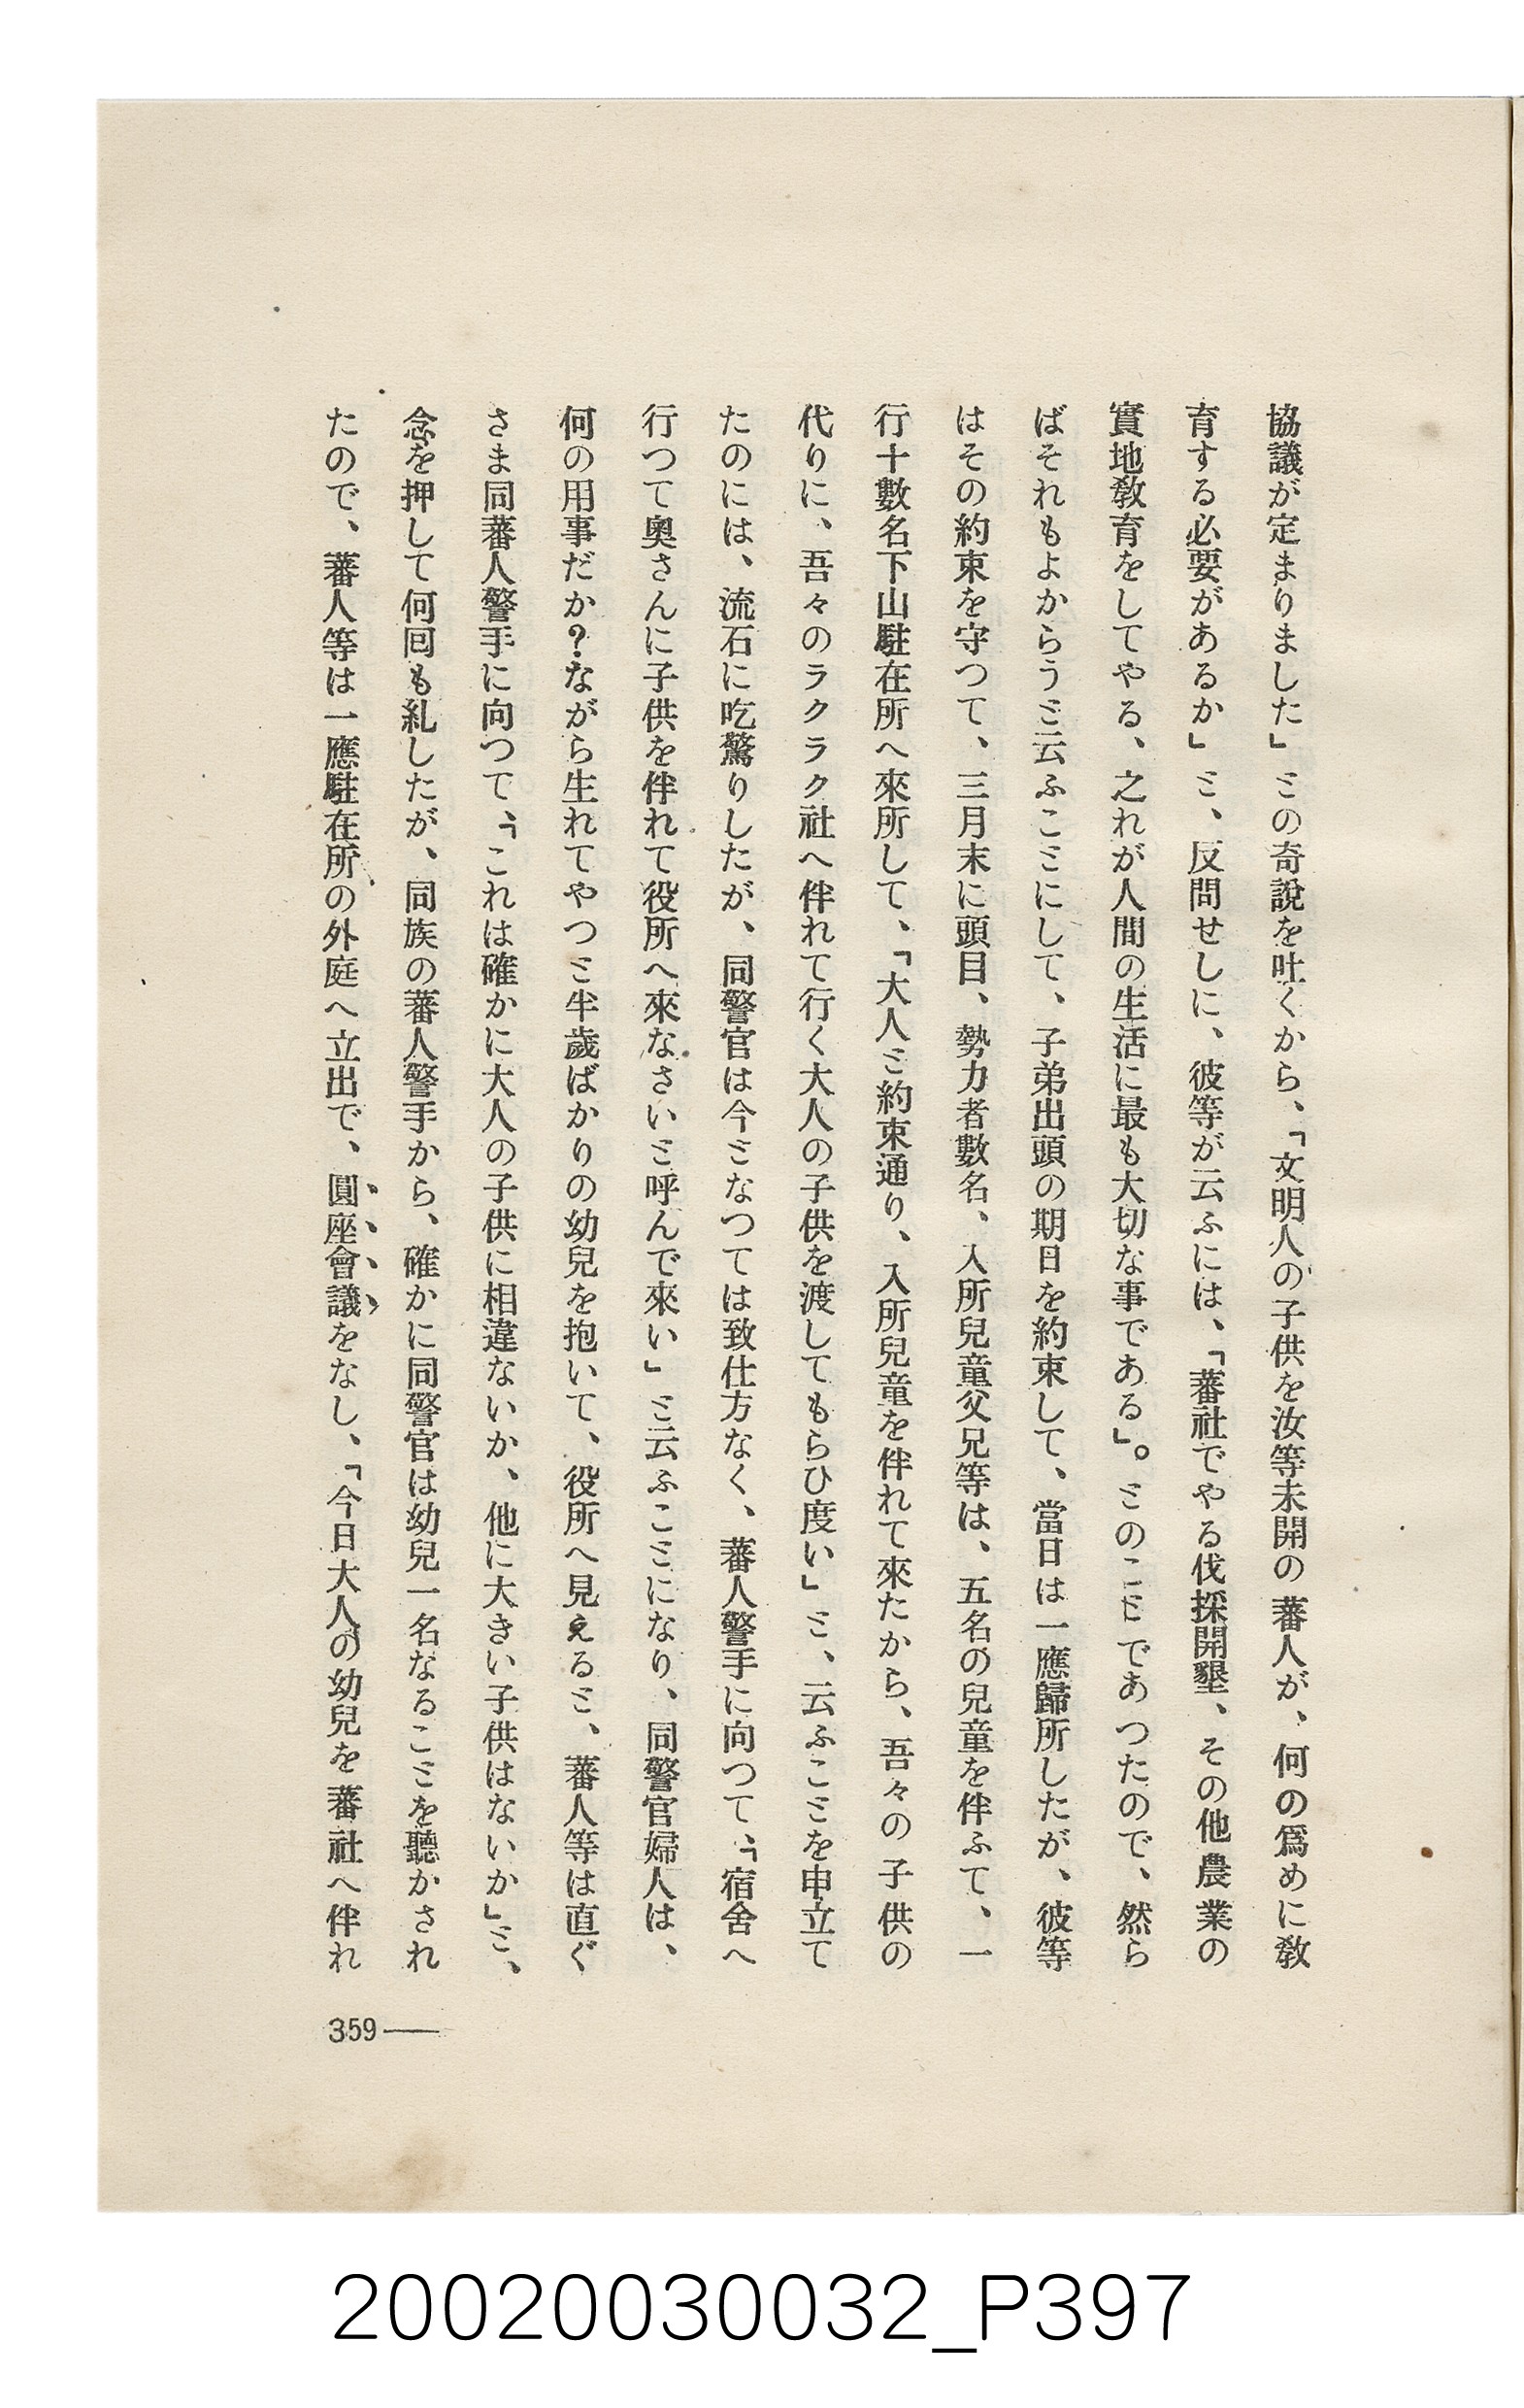 協議が定まりました」との奇說を吐くから、「文明人の子供を汝等未開の蕃人が、何の爲めに敎
育する必要があるか」と、反問せしに、彼等が云ふには、「蕃社でやる伐採開墾、その他農業の
實地敎育をしてやる、之れが人間の生活に最も大切な事である」。とのことであつたので、然ら
ばそれもよからうと云ふことにして、子弟出頭の期日を約束して、當日は一應歸所したが、彼等
はその約束を守つて、三月末に頭目、勢力者數名、入所兒童父兄等は、五名の兒童を伴ふて、一
行十數名下山駐在所へ來所して、「大人と約束通り、入所兒童を伴れて來たから、吾々の子供の
代りに、吾々のラクラク社へ伴れて行く大人の子供を渡してもらひ度い」と、云ふことを申立て
たのには、流石に吃驚りしたが、同警官は今となつては致仕方なく、蕃人警手に向つて、「宿舍へ
行つて奥さんに子供を伴れて役所へ來なさいと呼んで來い」と云ふことになり、同警官婦人は、
何の用事だか?ながら生れてやつと半歲ばかりの幼兒を抱いて、役所へ見えると、蕃人等は直ぐ
さま同蕃人警手に向つて、「これは確かに大人の子供に相違ないか、他に大きい子供はないか」と、
念を押して何囘も糺したが、同族の蕃人警手から、確かに同警官は幼兒一名なることを聽かされ
たので、蕃人等は一應駐在所の外庭へ立出で、圓座會議をなし、「今日大人の幼兒を蕃社へ伴れ
359——
20020030032_P397